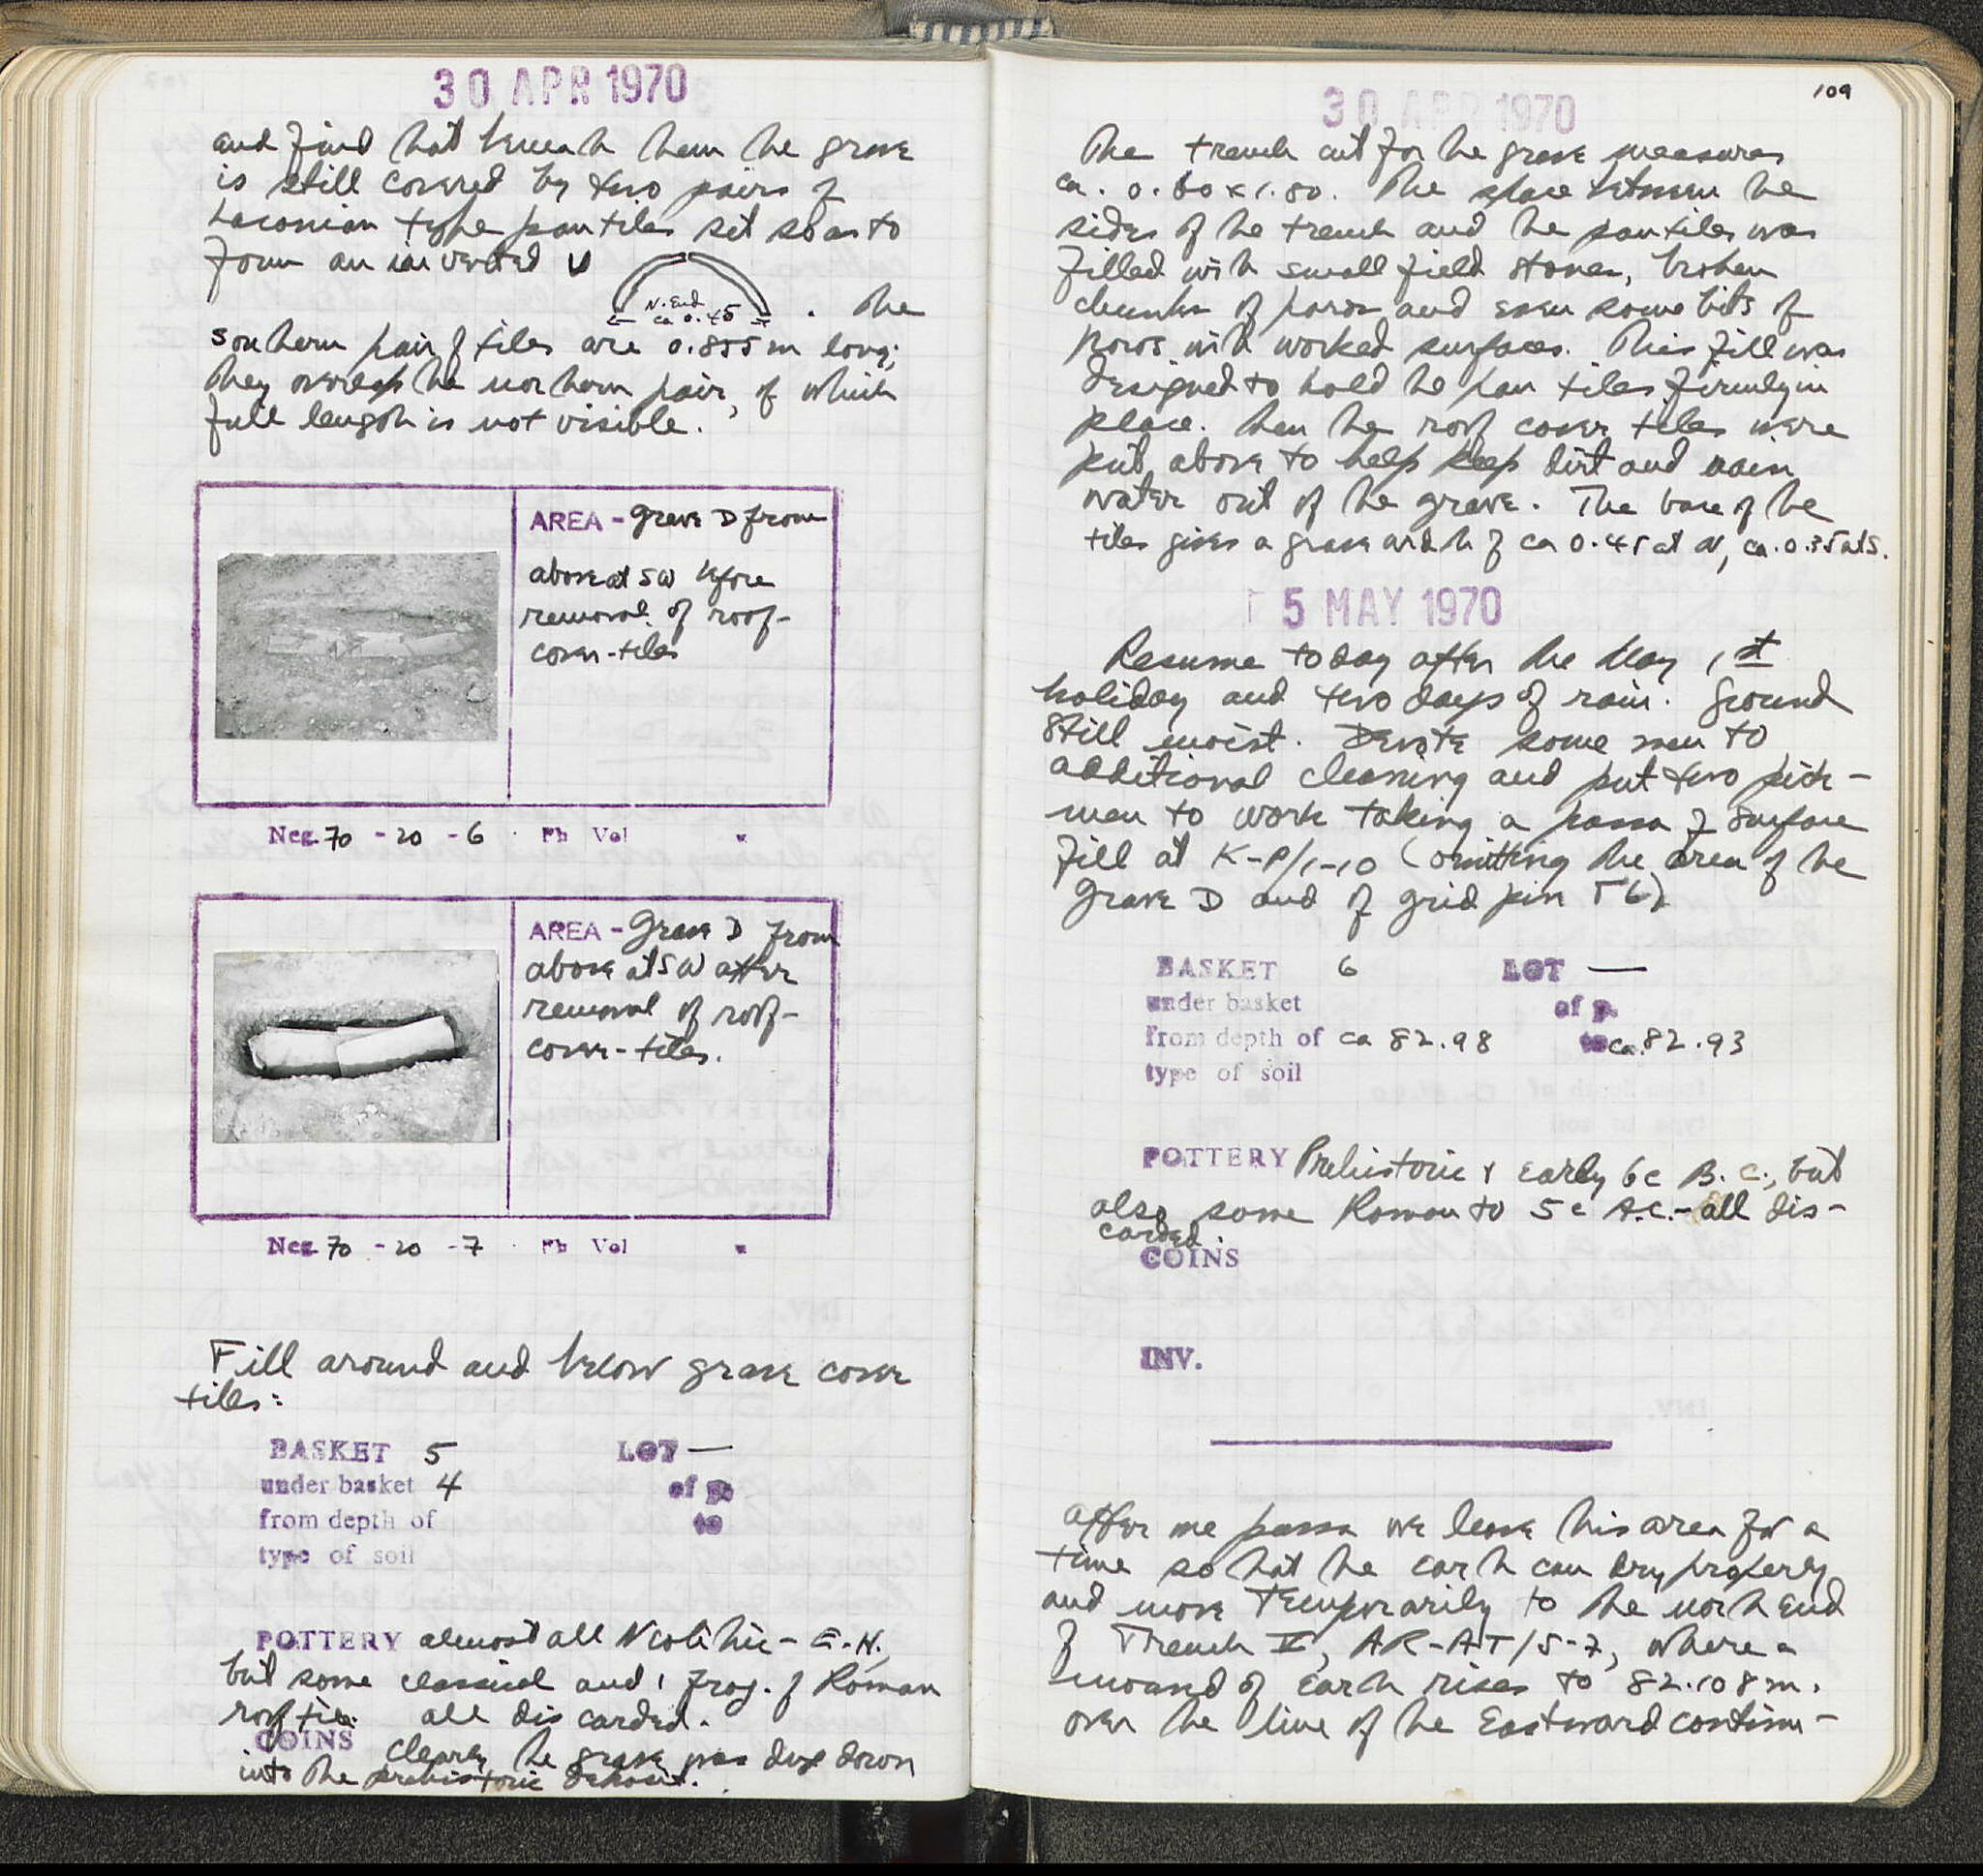 30 APR 1970
and find that beneath them the grave
is still covered by two pairs of
Laconian type pan tiles set so as to
form an inverted U
N. End
ca 0.45
. The
southern pair of tiles are 0.855 m long;
they overlap the northern pair, of which
full length is not visible.
AREA - Grave D from
above at SW before
removal of roof-
cover-tiles
Neg. 70 - 20 - 6 Ph Vol
AREA - Grave D from
above at SW after
removal of roof-
cover-tiles.
Neg. 70 - 20 - 7 Ph Vol
Fill around and below grave cover
tiles:
BASKET 5 LOT —
under basket 4 of p.
from depth of to
type of soil
POTTERY almost all Neolithic - E.H.,
but some classical and 1 frag. of Roman
roof tile. all discarded.
COINS
Clearly the grave was dug down
into the prehistoric deposit.
109
30 APR 1970
The trench cut for the grave measures
ca. 0.60 x 1.80. The space between the
sides of the trench and the pan tiles was
filled with small field stones, broken
chunks of poros and even some bits of
poros with worked surfaces. This fill was
designed to hold the pan tiles firmly in
place. Then the roof cover tiles were
put above to help keep dirt and rain
water out of the grave. The base of the
tiles gives a grave width of ca 0.45 at N, ca. 0.35 at S.
5 MAY 1970
Resume today after the May 1st
holiday and two days of rain. Ground
still moist. Devote some men to
additional cleaning and put two pick-
men to work taking a passa of surface
fill at K-P/1-10 (omitting the area of the
Grave D and of grid pin
BASKET 6 LOT —
under basket of p.
from depth of ca 82.98 to ca. 82.93
type of soil
POTTERY Prehistoric & early 6c B.C., but
also some Roman to 5c A.C. - all dis-
carded.
COINS
INV.
After one passa we leave this area for a
time so that the earth can dry properly
and move temporarily to the north end
of Trench V, AR-AT/5-7, where a
mound of earth rises to 82.108 m.
over the line of the Eastward continu-